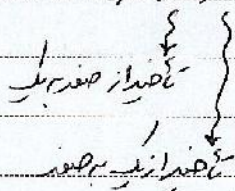 تأخیر از صفر به یک
تأخیر از یک به صفر